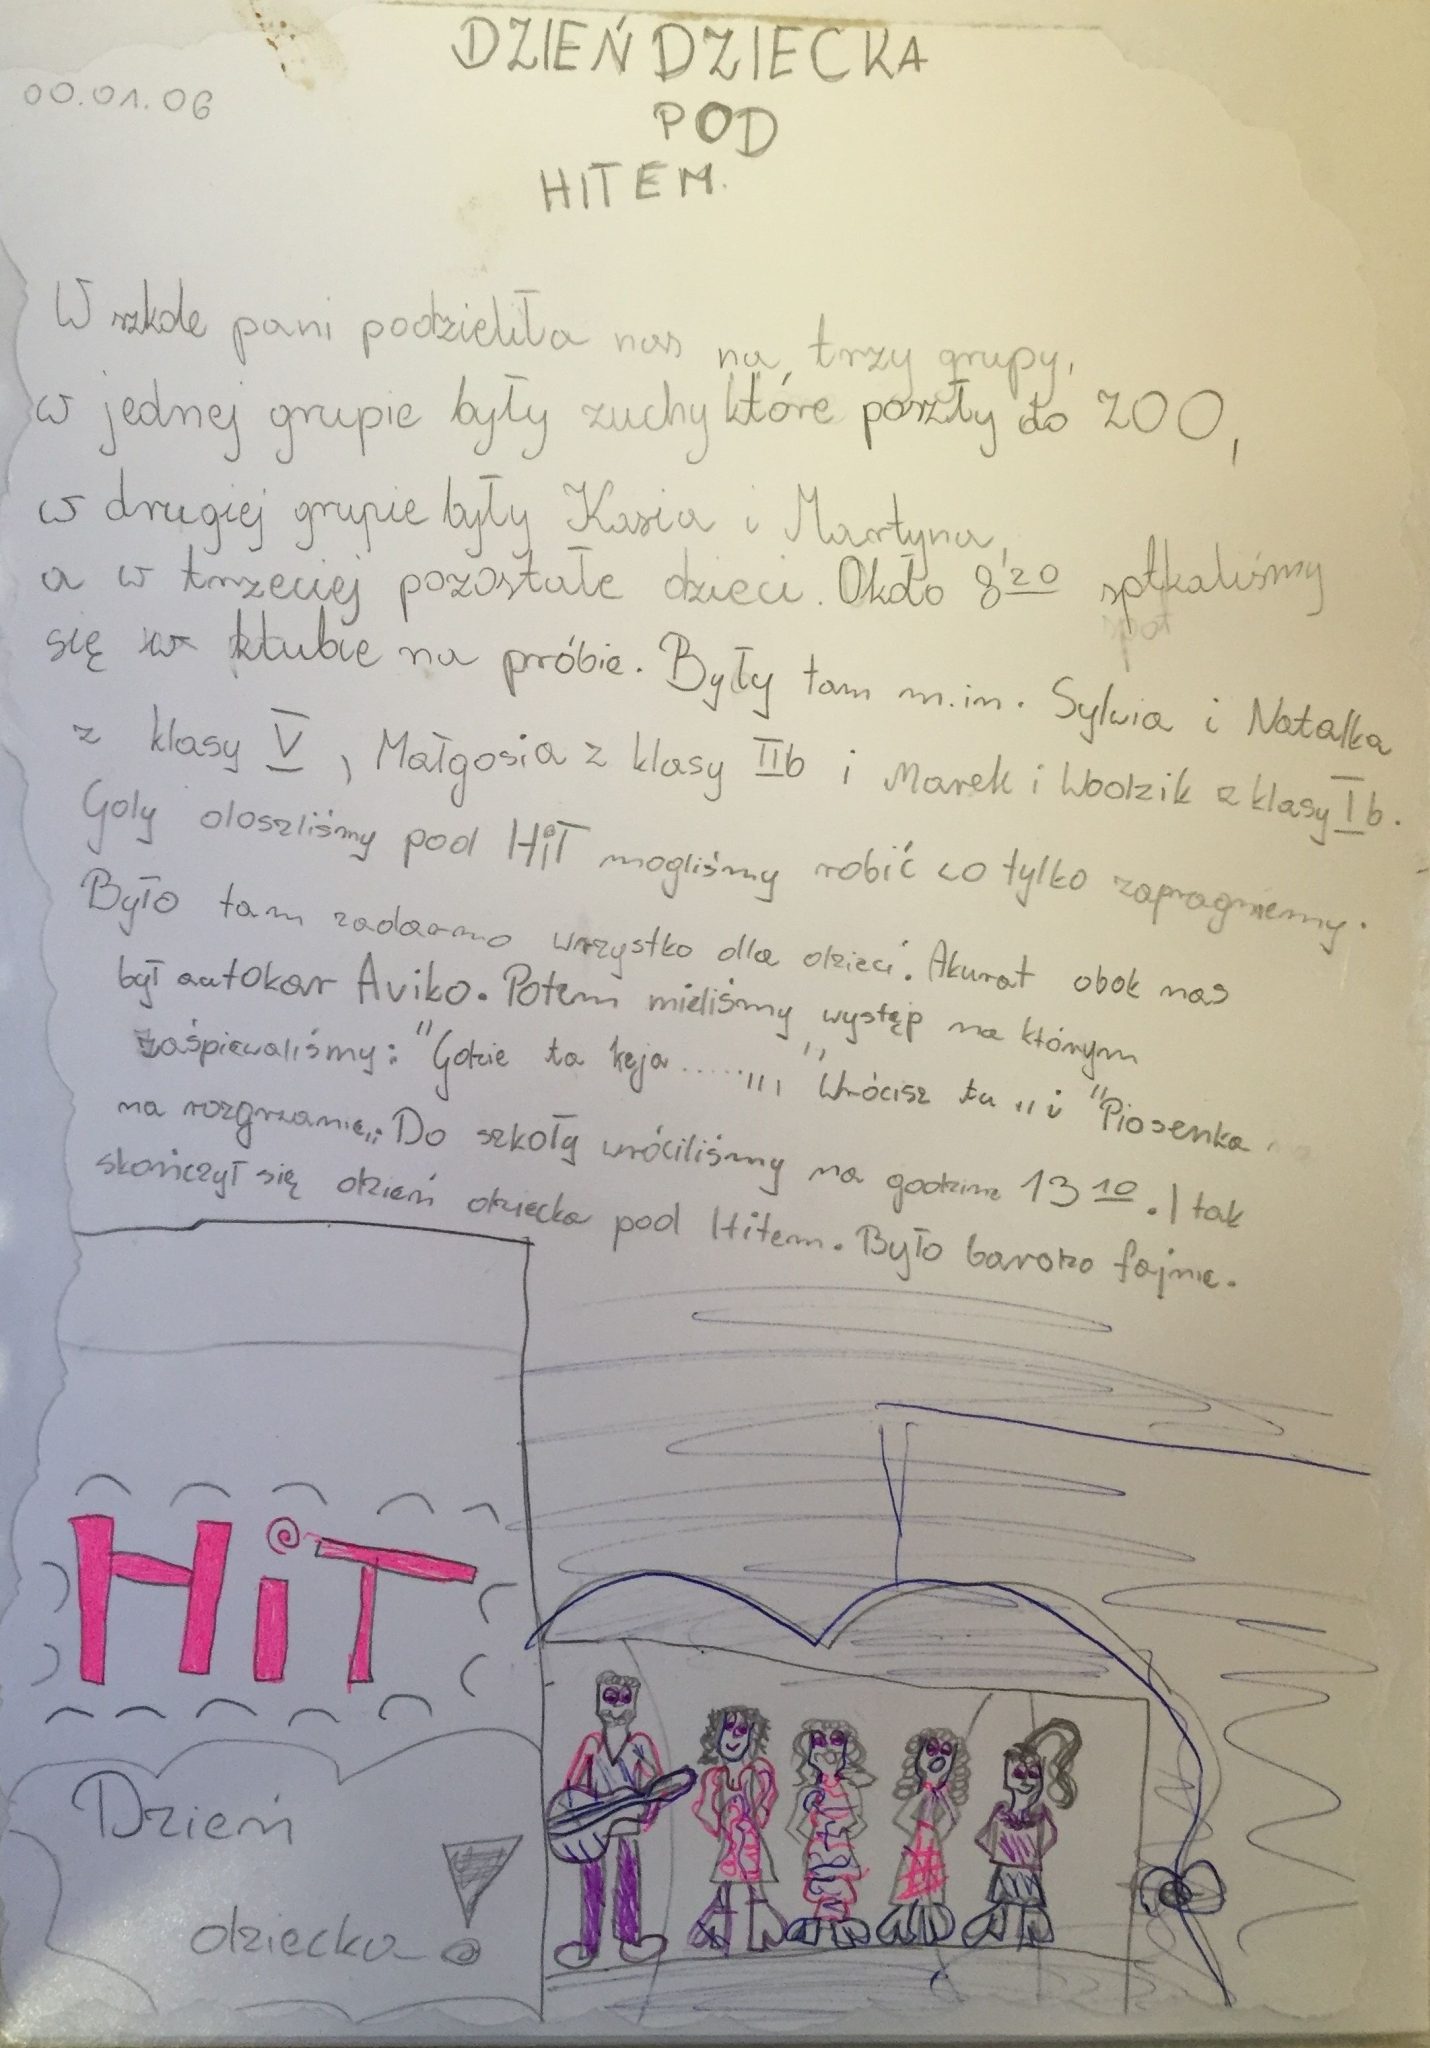 DZIEŃ DZIECKA
00.01.06
POD
HITEM.
W szkole pani podzieliła nas na trzy grupy,
w jednej grupie były zuchy które poszły do ZOO,
w drugiej grupie były Kasia i Martyna,
a w trzeciej pozostałe dzieci. Około 8²⁰ sptkaliśmy
się w klubie na próbie. Były tam m.in. Sylwia i Natalka
z klasy V, Małgosia z klasy IIb i Marek i Wodzik z klasy Ib.
Gdy doszliśmy pod HiT mogliśmy robić co tylko zapragniemy.
Było tam zadarmo wszystko dla dzieci. Akurat obok nas
był autokar Aviko. Potem mieliśmy występ na którym
zaśpiewaliśmy: "Gdzie ta keja.....,,, "Wrócisz tu,, i "Piosenka
na rozgrzanie,,. Do szkoły wróciliśmy na godzine 13¹⁰. I tak
skończył się dzień dziecka pod Hitem. Było bardzo fajnie.
HiT
Dzień
dziecka!